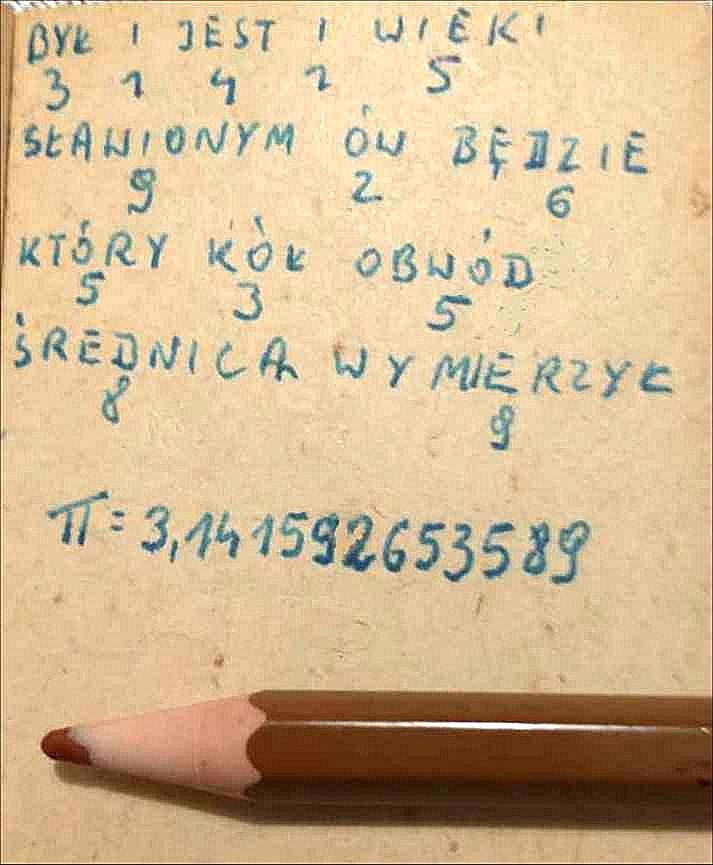 BYŁ I JEST I WIEKI
3 1 4 1 5
SŁAWIONYM ÓW BĘDZIE
9 2 6
KTÓRY KÓŁ OBWÓD
5 3 5
ŚREDNICĄ WYMIERZYŁ
8 9
π = 3,141592653589